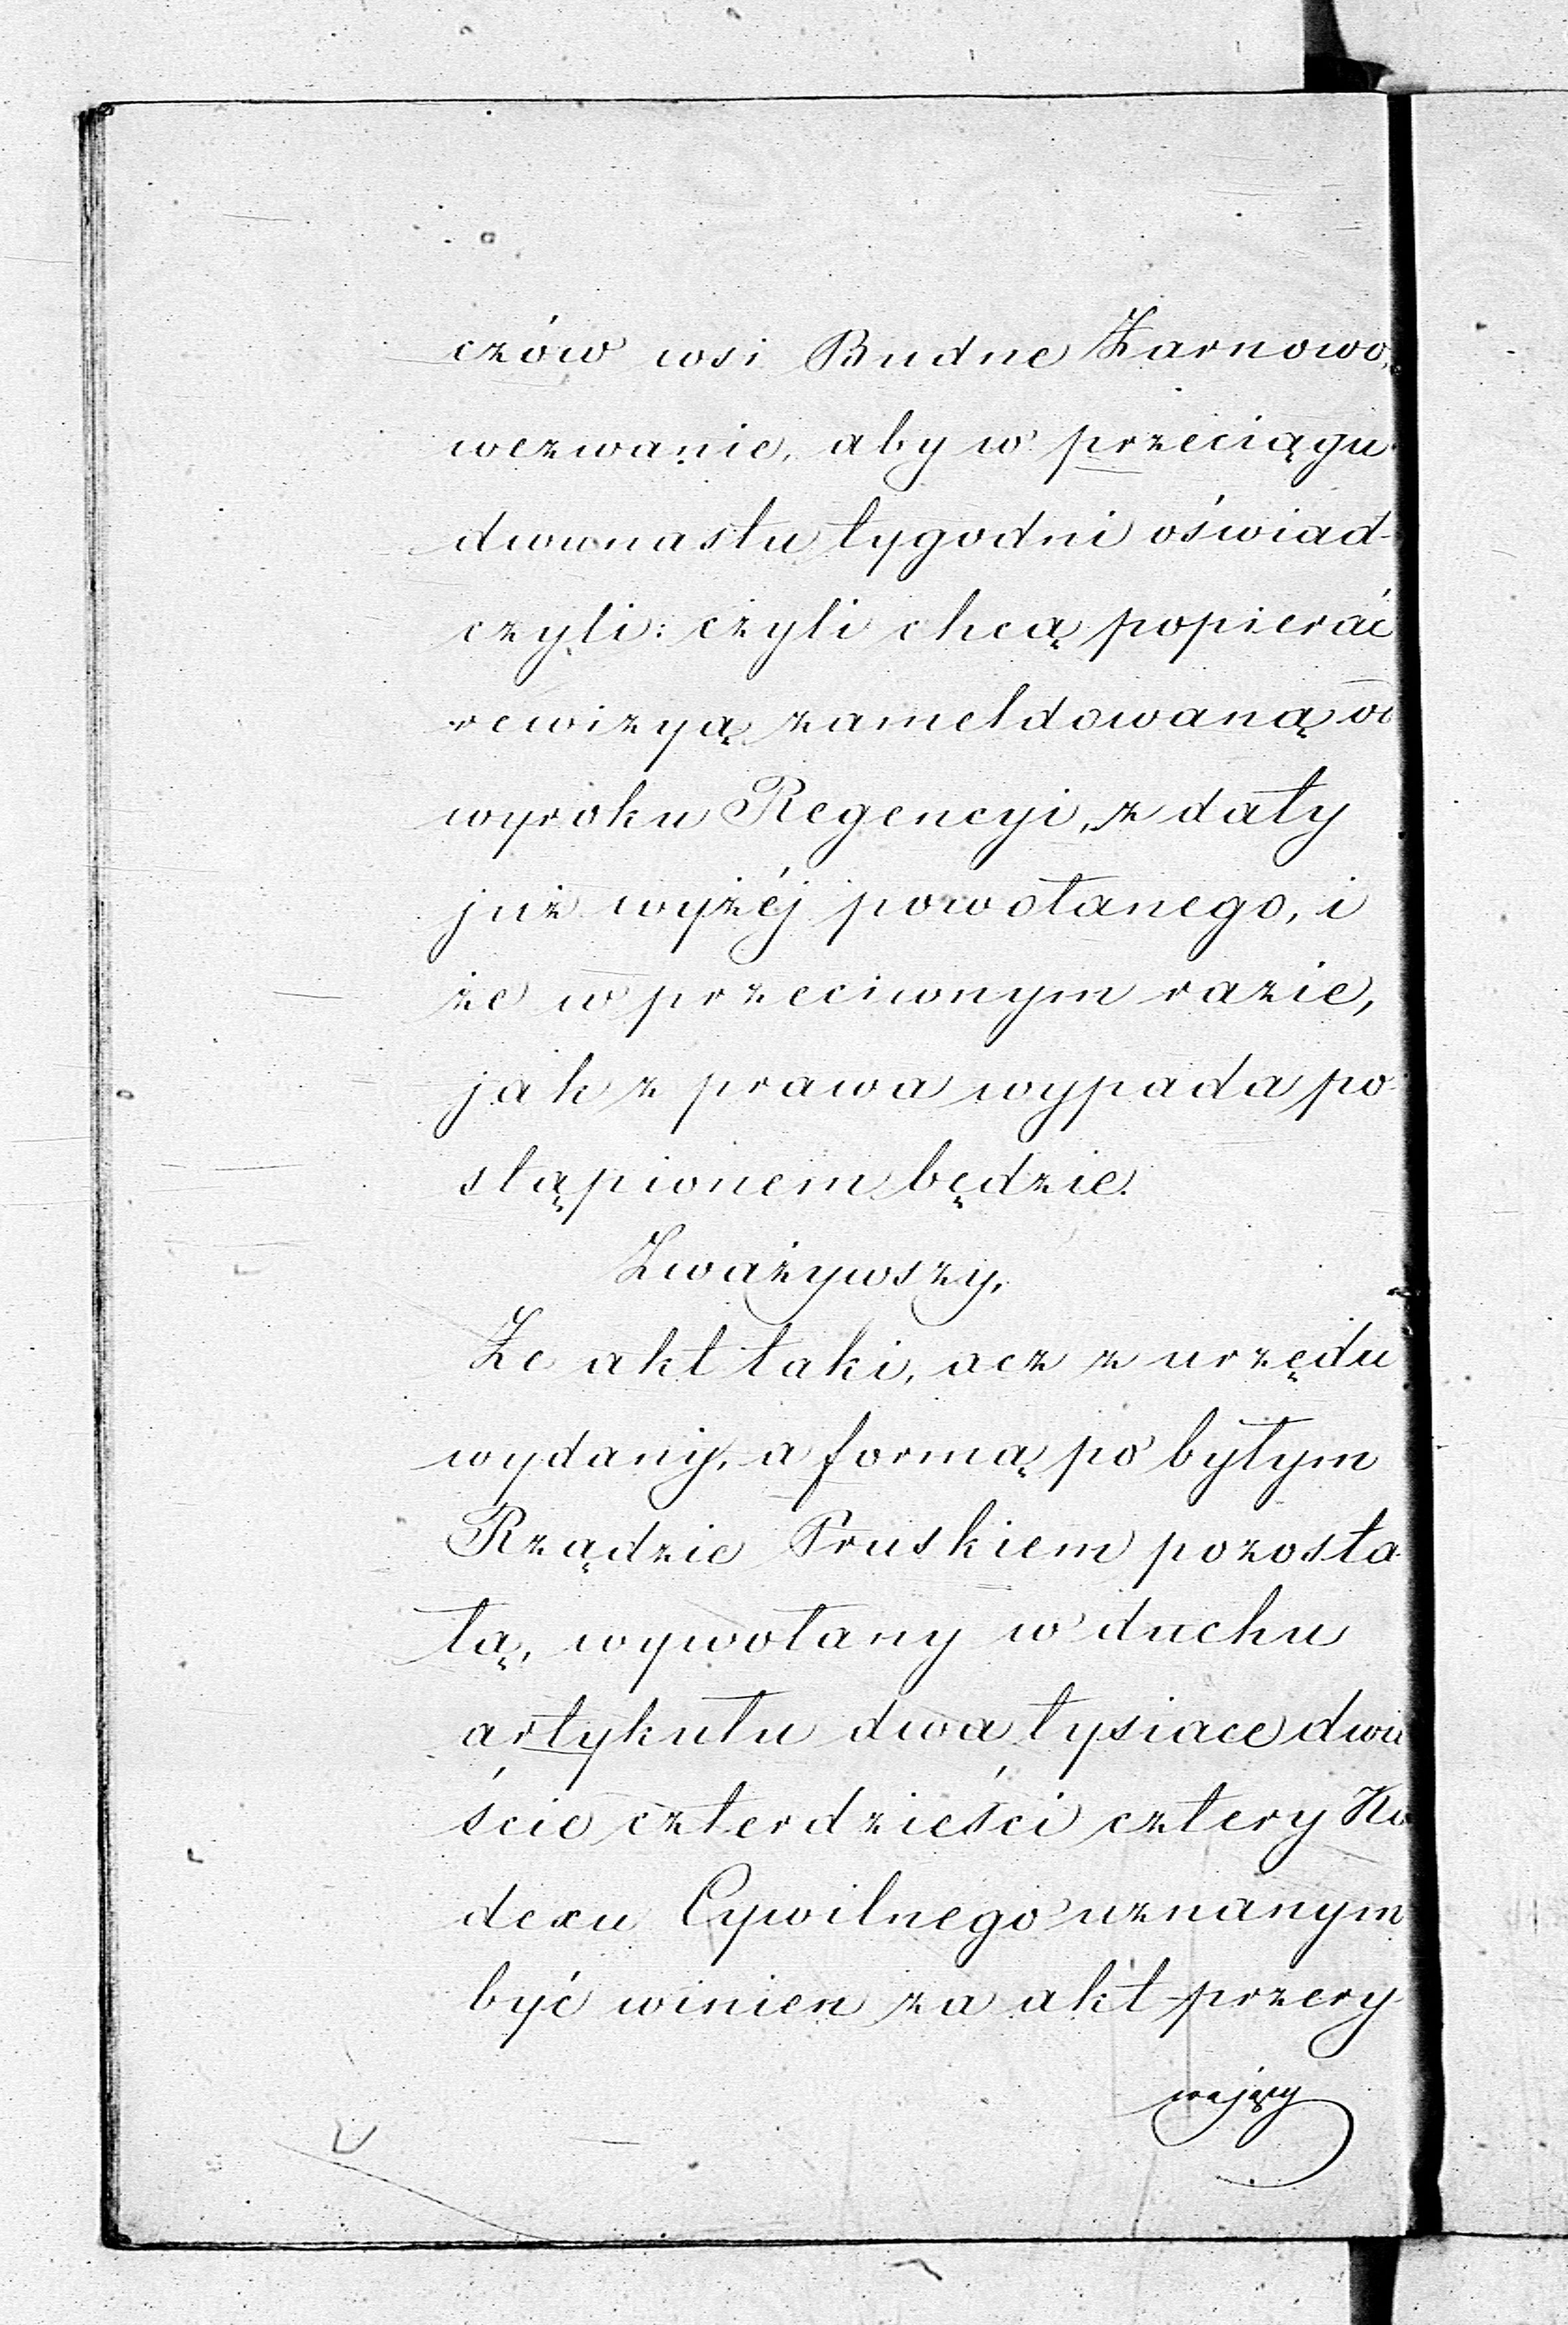 czów wsi Budne Żarnowo,
wezwanie, aby w przeciągu
dwunastu tygodni oświad-
czyli: czyli chcą popierać
rewizyą zameldowaną od
wyroku Regencyi, z daty
już wyżéj powołanego, i
że w przeciwnym razie,
jak z prawa wypada po-
stąpionem będzie.
Zważywszy,
Że akt taki, acz z urzędu
wydany, a formą po byłym
Rządzie Pruskiem pozosta-
łą, wywołany w duchu
artykułu dwa tysiące dwie
ście czterdzieści cztery Ko
dexu Cywilnego uznanym
być winien za akt przery-
wający